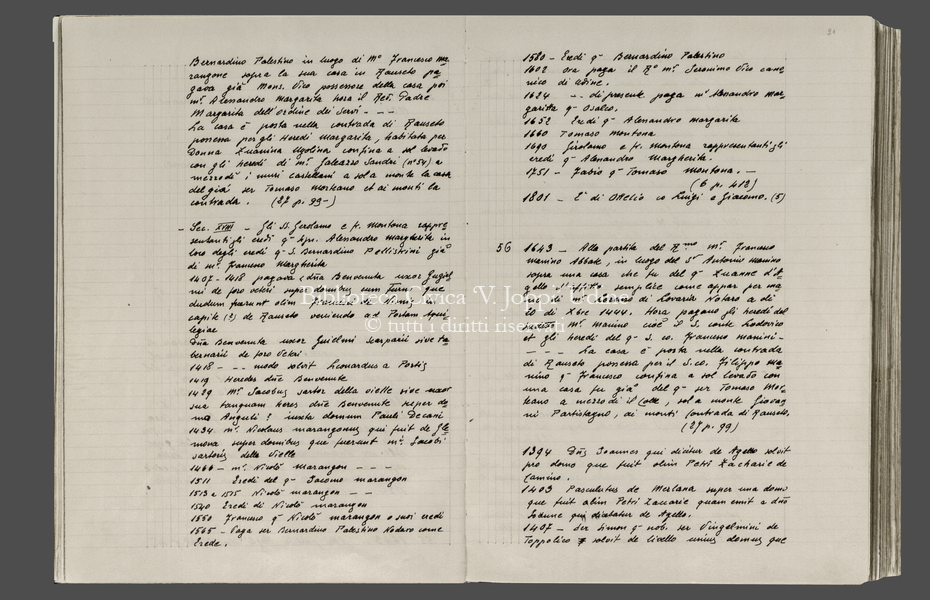 Bernardino Palestino in luogo di Mº Francesco Ma=
rangone sopra la sua casa in Rauseto pa=
gava già Mons. Vico possessore della casa poi
mº. Alessandro Margarita hora il Revº. Padre
Margarita dell'ordine dei Servi - - -
La casa è posta nella contrada di Rauseto
possessa per gli Heredi Margarita, habitata per
Donna Zuanina Ugolina confina a sol levado
con gli heredi di mº. Galeazzo Sandri (nº54) a
mezzodì i muri castellani a sol a monte la casa
del già ser Tomaso Montano et ai monti la
contrada. (27 p. 99-)
- Sec. XVIII - Gli SS. Gerolamo e fr. Montona rappre=
sentanti gli eredi qº Sgr. Alessandro Margherita in
loco degli eredi qº S. Bernardino Pellistini già
di mº. Francesco Margherita
1407-1418 pagava dña Benvenuta uxor
de foro veteri super domibus cum que
dudum fuerunt olim
capite (2) de Rauseto veniendo ad Portam Aqui=
legiae
Dña Benvenuta uxor Guielmi Scarparii sive ta=
bernarii de foro Veteri.
1418 - - - modo solvit Leonardus a Portis
1419 Heredes dñe Benvenute
1429 Mº. Jacobus sartor della vielle sive uxor
sua tanquam heres dñe Benvenute super do=
mo Anguli? iuxta domum Pauli Decani
1434 mº. Nicolaus marangonus qui fuit de Gle=
mona super domibus que fuerunt mº. Jacobi
sartoris della Vielle
1466 - mº. Nicolò marangon - - -
1511 Eredi del qº Giacomo marangon
1513 a 1515 Nicolò marangon - -
1540 Eredi di Nicolò marangon
1550 Francesco qº Nicolò marangon o suoi eredi
1565 - Paga ser Bernardino Palestino Nodaro come
Erede.
1580 - Eredi qº Bernardino Palestino
1602 ora paga il Rº mº. Jeronimo Vico cano=
nico di Udine.
1624 - - di presente paga mº Alexandro Mar=
garitta qº Osaleo.
1652 Eredi qº Alexandro Margarita
1660 Tomaso Montona
1690 Girolamo e fr. Montona rappresentanti gli
eredi qº Alexandro Margherita.
1751 - Fabio qº Tomaso Montona. -
(6 p. 418)
1801 - E' di Ottelio co Luigi e Giacomo. (5)
56 1643 - Alla partita del Rmo mº. Francesco
Manino Abbate, in luogo del Sr Antonio Manino
sopra una casa che fu del qº Zuanne d'A=
gello d'affitto semplice come appar per ma=
no di Leonardo di Lovaria Notaro a di
10 di Xbre 1444. Hora pagano gli heredi del
mº. Manino cioè S S. conte Lodovico
et gli heredi del qº S. co. Francesco Manini -
- - - - La casa è posta nella contrada
di Rauseto possessa per il S. co. Filippo Ma=
nino qº Francesco confina a sol levado con
una casa fu già del qº ser Tomaso Mon=
tano a mezzodì il Colle, sol a monte Giovan=
ni Partistagno, ai monti Contrada di Rauseto.
(27 p. 99)
1394 Dñs Ioannes qui dicitur de Agello solvit
pro domo que fuit olim Petri Zacharie de
Camino.
1403 Pasculutus de Merlana super una domo
que fuit olim Petri Zaccarie quam emit a dño
Ioanne qui dicebatur de Agello.
1407 - ser Simon qº nob. ser Vingelmini de
Toppolico solvit de livello unius domus que
Biblioteca Civica 'V. Joppi' Udine
© tutti i diritti riservati